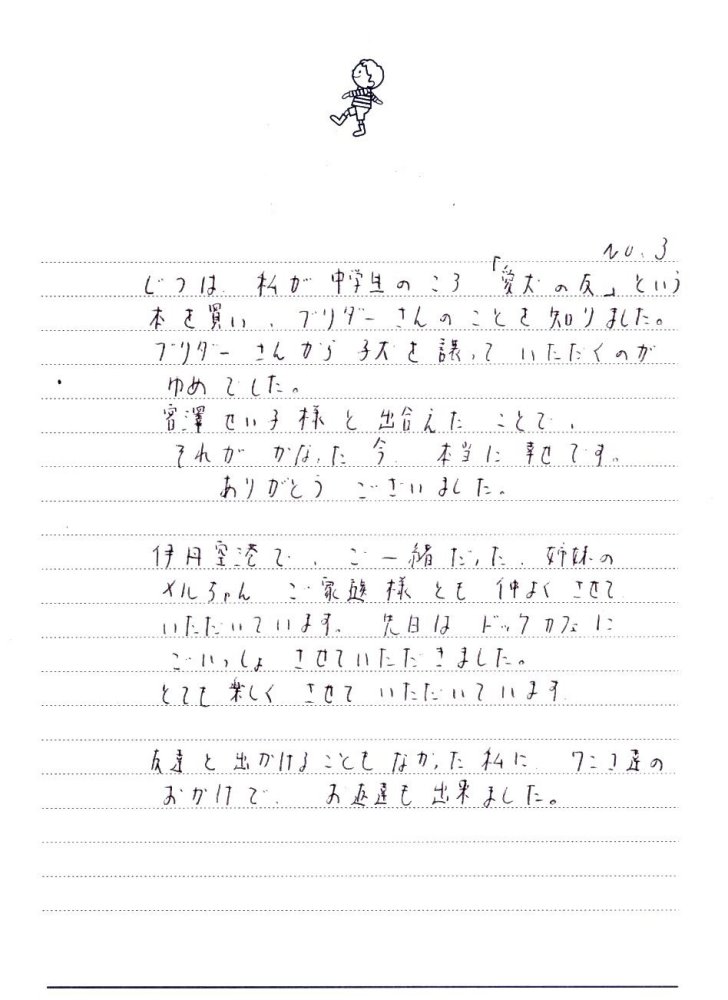 No.3
じつは 私が 中学生のころ 「愛犬の友」という
本を買い、ブリダーさんのことを知りました。
ブリダーさんから子犬を譲っていただくのが
ゆめでした。
宮澤せい子様と出合えたことで、
それがかなった今 本当に幸せです。
ありがとうございました。
伊丹空港で、ご一緒だった、姉妹の
メルちゃん ご家族様とも仲よくさせて
いただいています。先日は ドックカフェに
ごいっしょさせていただきました。
とても楽しくさせていただいています
友達と出かけることもなかった私に ワンコ達の
おかげで、お友達も出来ました。